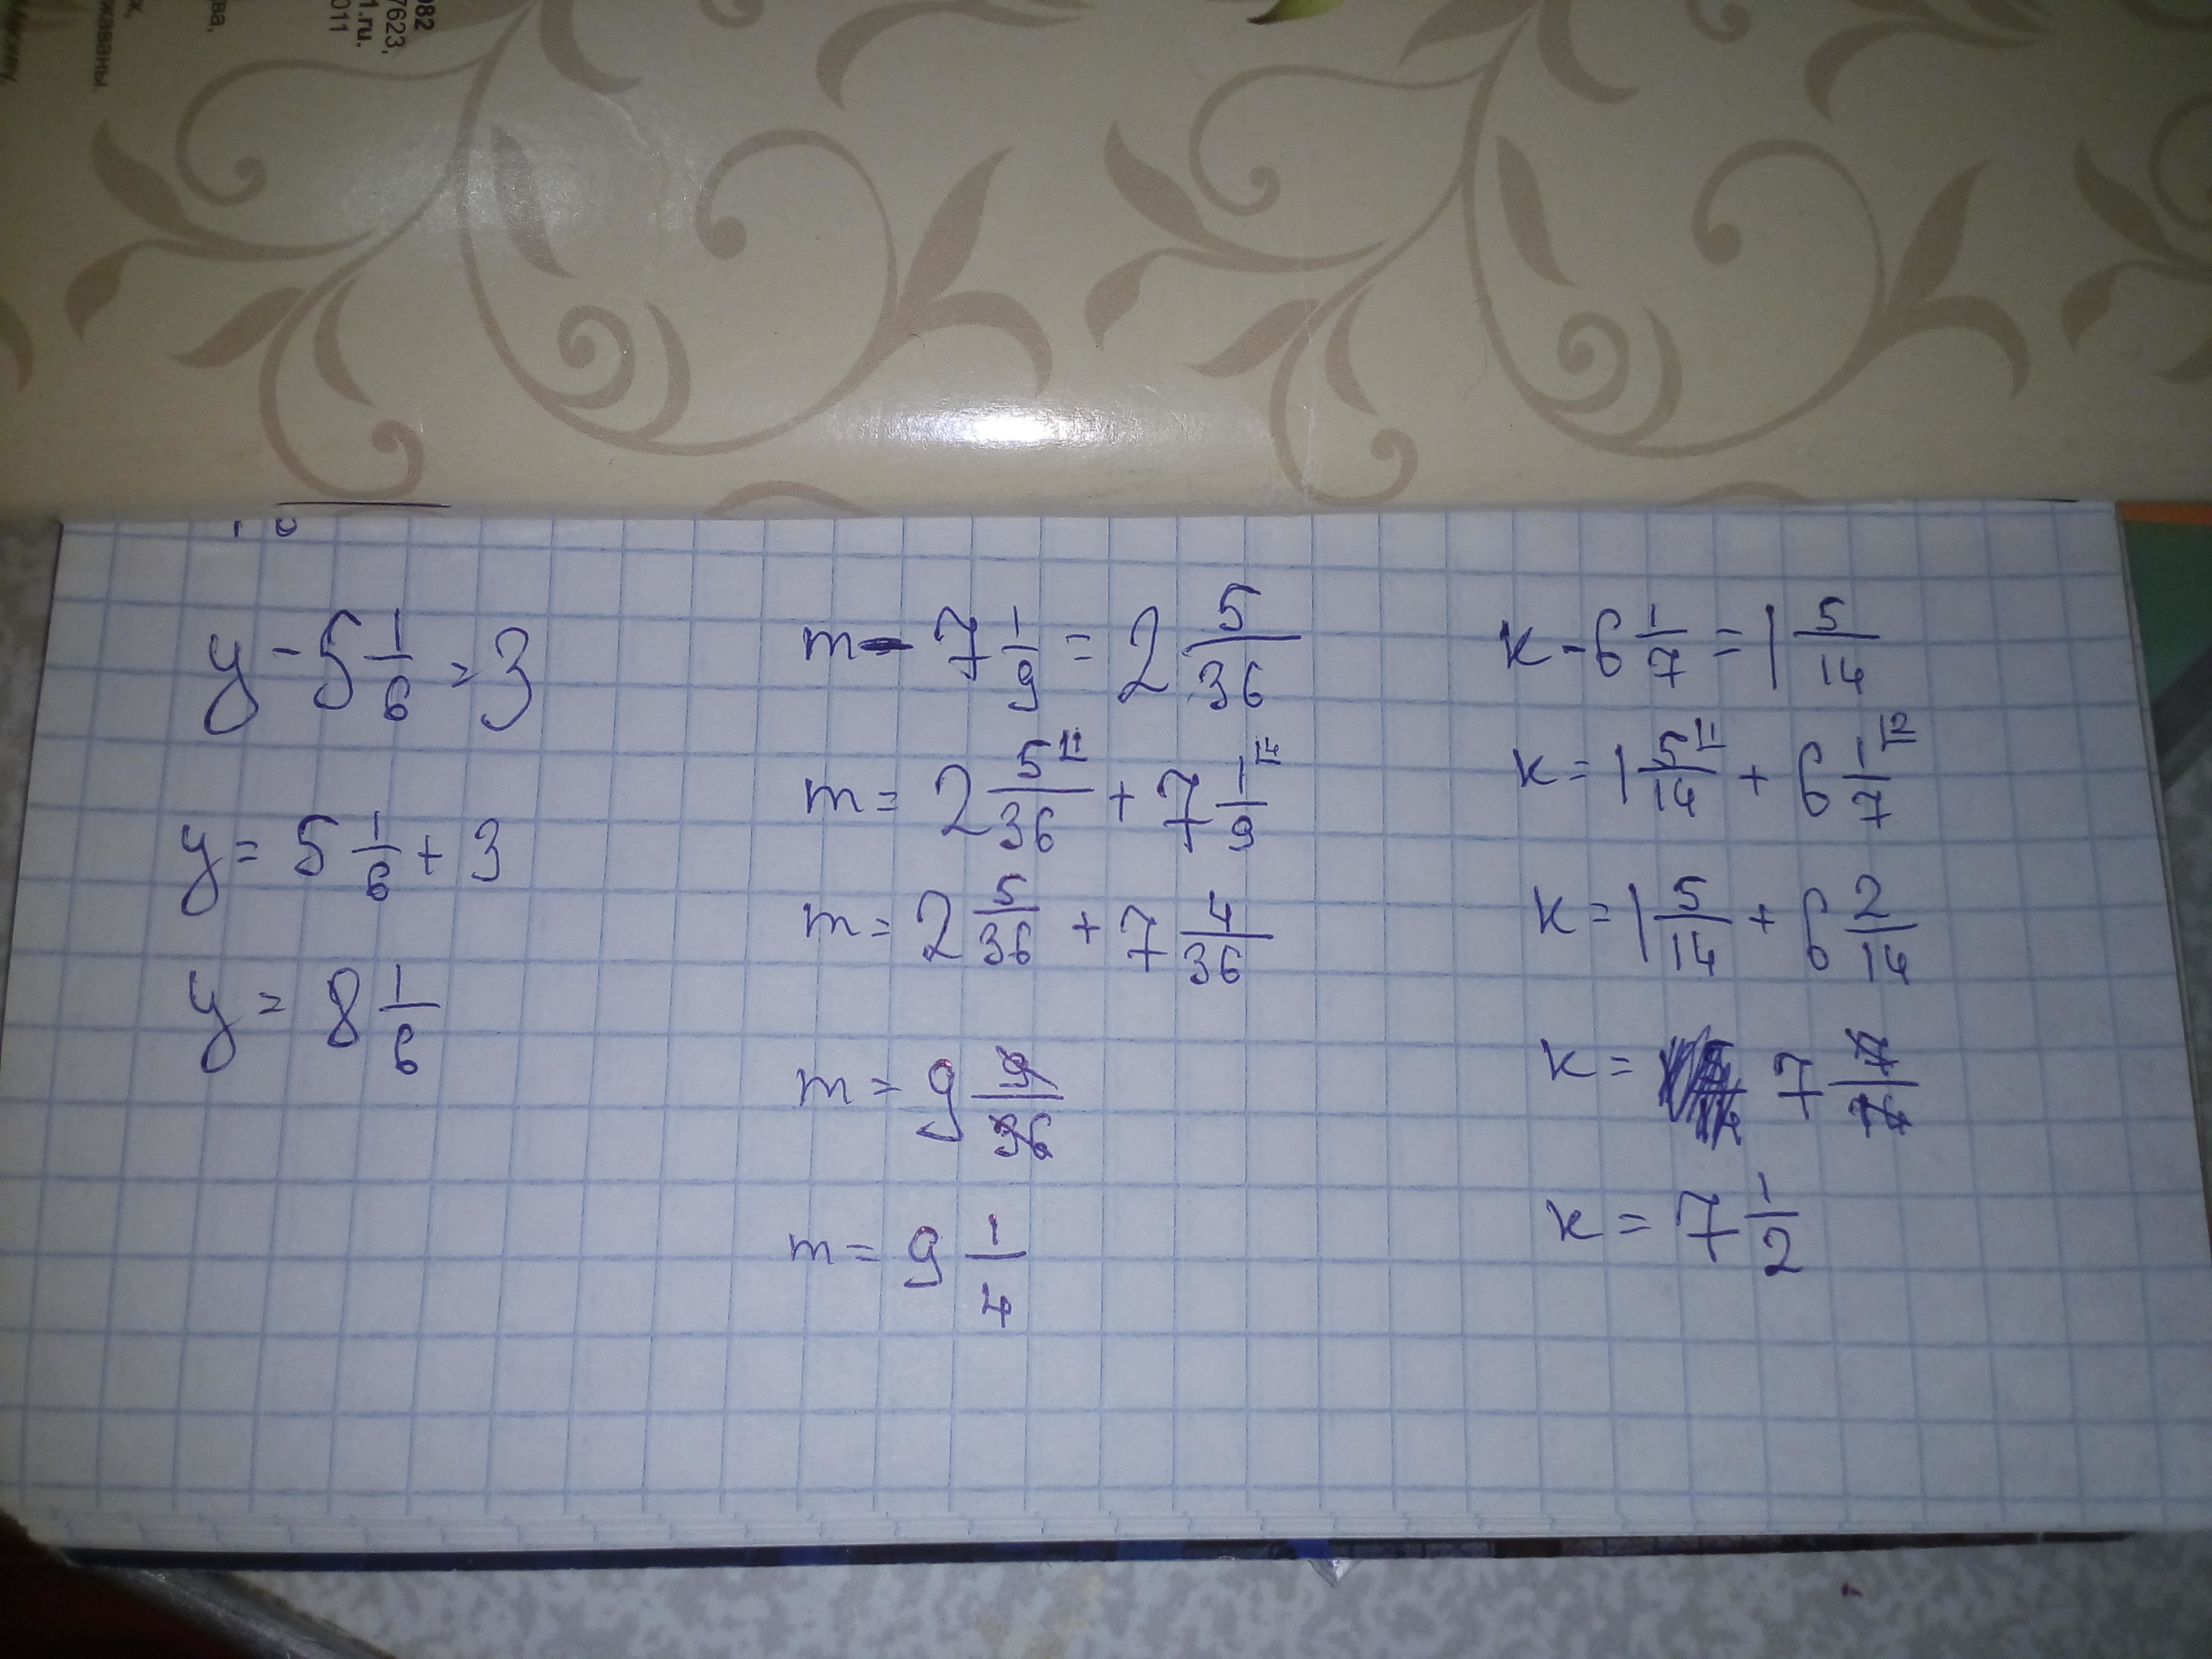 082
7623,
1.ru.
011
ва,
ж,
y - 5 1/6 = 3
y = 5 1/6 + 3
y = 8 1/6
m - 7 1/9 = 2 5/36
m = 2 5/36 + 7 1/9
m = 2 5/36 + 7 4/36
m = 9 9/36
m = 9 1/4
к - 6 1/7 = 1 5/14
к = 1 5/14 + 6 1/7
к = 1 5/14 + 6 2/14
к = 7 7/14
к = 7 1/2